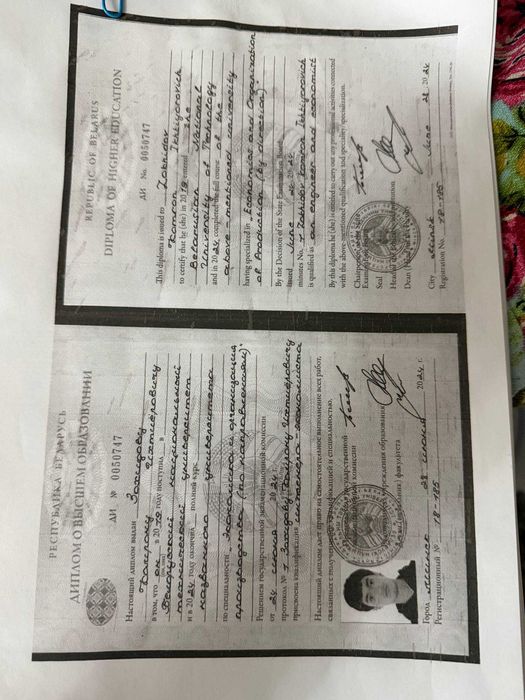 РЕСПУБЛИКА БЕЛАРУСЬ
ДИПЛОМ О ВЫСШЕМ ОБРАЗОВАНИИ
ДИ № 0050747
Настоящий диплом выдан Зокирову
Комрону Ихтиёровичу
в том, что он в 2019 году поступил в
Белорусский национальный
технический университет
и в 2024 году окончил полный курс
названного университета
по специальности Экономика и организация
производства (по направлениям).
Решением государственной экзаменационной комиссии
от 24 июня 2024 г.
протокол № 7 Зокирову Комрону Ихтиёровичу
присвоена квалификация инженера-экономиста
Настоящий диплом дает право на самостоятельное выполнение всех работ,
связанных с полученной квалификацией и специальностью.
государственной
комиссии
учреждения образования
факультета
Город Минск 28 июня 2024 г.
Регистрационный № 18-185
REPUBLIC OF BELARUS
DIPLOMA OF HIGHER EDUCATION
ДИ No. 0050747
This diploma is issued to Zokirov
Komron Ikhtiyorovich
to certify that he (she) in 2019 entered the
Belarusian National
University of Technology
and in 2024 completed the full course of the
above-mentioned university
having specialized in Economics and Organization
of Production (by direction)
By the Decision of the State Examination Board
issued June 24 2024
minutes No. 7 Zokirov Komron Ikhtiyorovich
is qualified as an engineer and economist
By this diploma he (she) is entitled to carry out any professional activities connected
with the above-mentioned qualification and speciality/specialization.
Chairperson
Examination
Seal
Head of the
Dean (Head
City Minsk June 28 2024
Registration No. 18-185